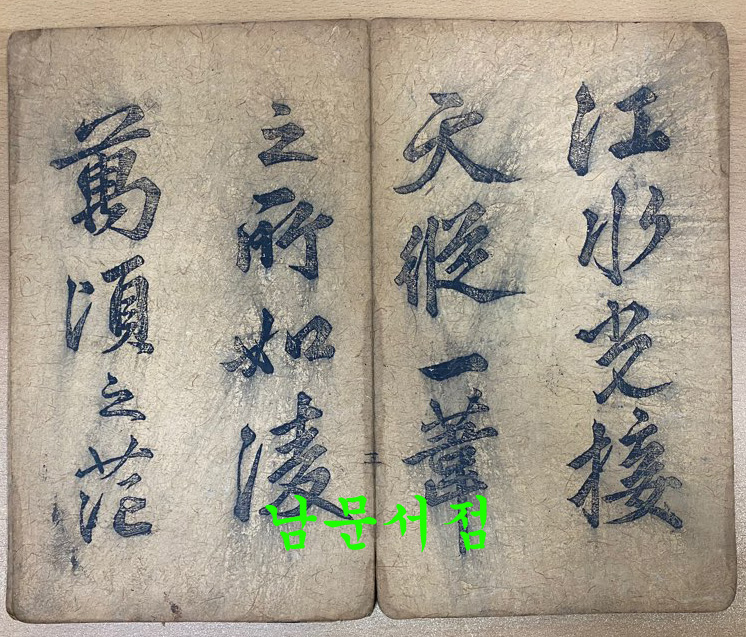 江水光接
天縱一葦
之所如淩
萬頃之茫
남문서점